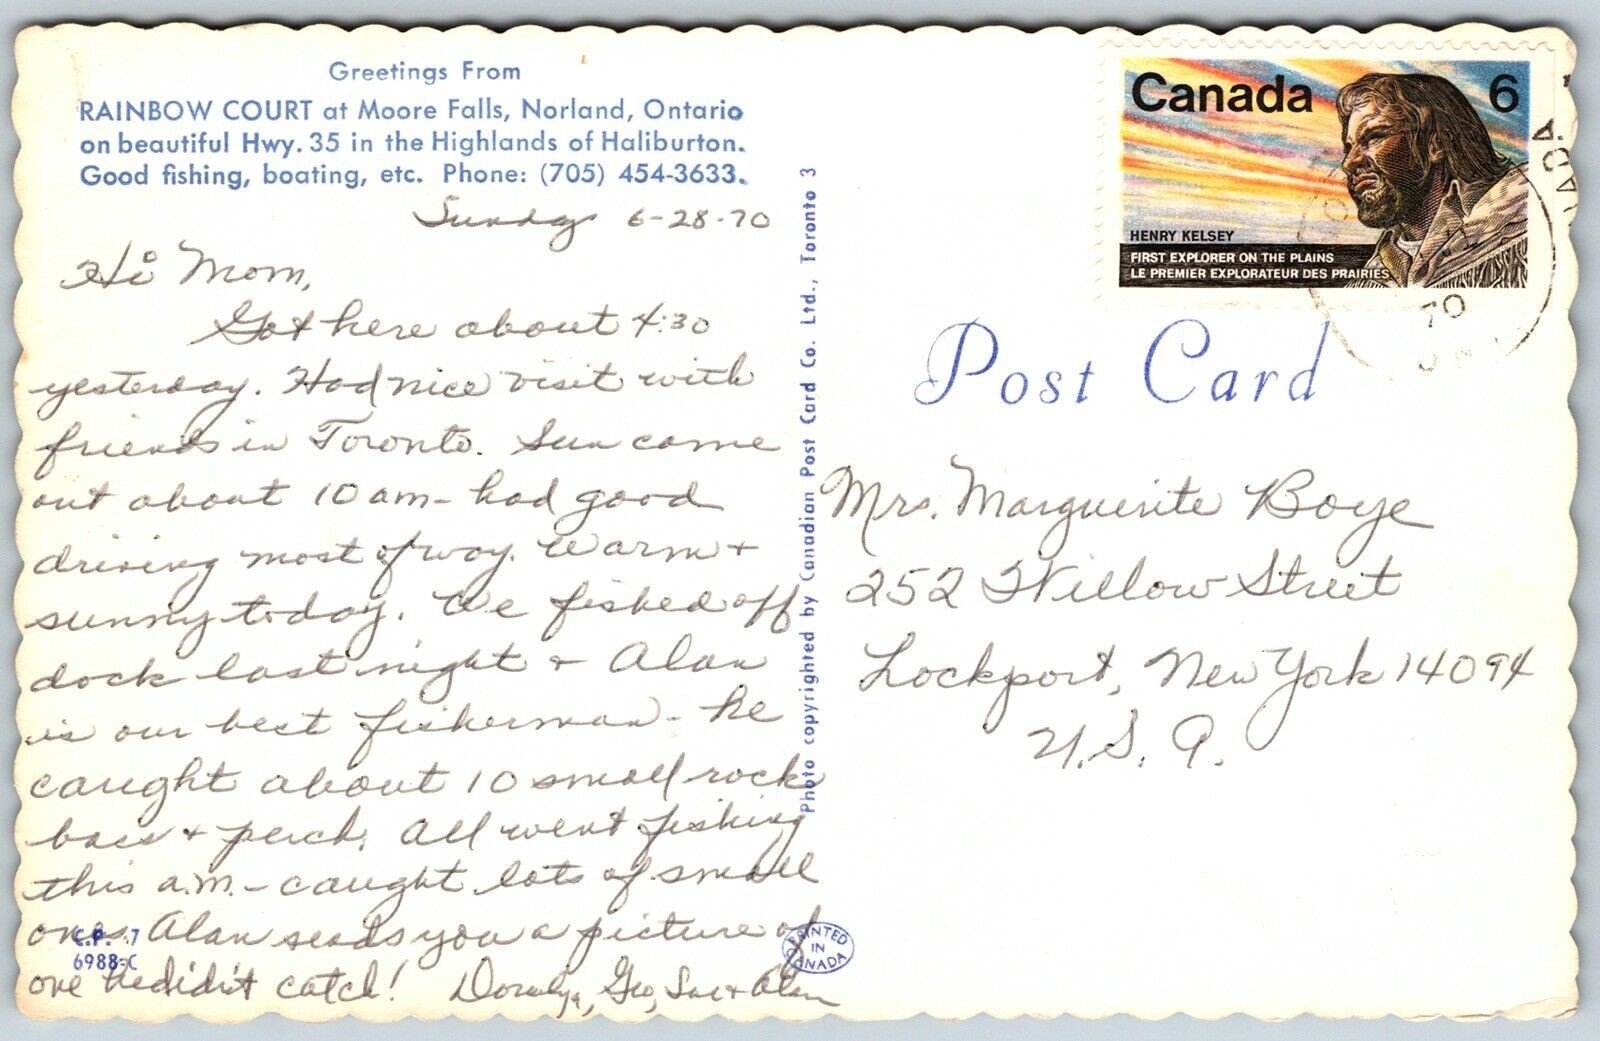 Greetings From
RAINBOW COURT at Moore Falls, Norland, Ontario
on beautiful Hwy. 35 in the Highlands of Haliburton.
Good fishing, boating, etc. Phone: (705) 454-3633.
Sunday 6-28-70
Hi Mom,
Got here about 4:30
yesterday. Had nice visit with
friends in Toronto. Sun came
out about 10 am - had good
driving most of way. Warm +
sunny today. We fished off
dock last night + Alan
is our best fisherman - he
caught about 10 small rock
bass + perch. All went fishing
this a.m. - caught lots of small
ones. Alan sends you a picture of
one he didn't catch! Geo, Sue + Alan
C.P. 7
6988-C
Photo copyrighted by Canadian Post Card Co. Ltd., Toronto 3
PRINTED
IN
CANADA
Canada 6
HENRY KELSEY
FIRST EXPLORER ON THE PLAINS
LE PREMIER EXPLORATEUR DES PRAIRIES
70
Post Card
Mrs. Marguerite Boye
252 Willow Street
Lockport, New York 14094
U.S.A.